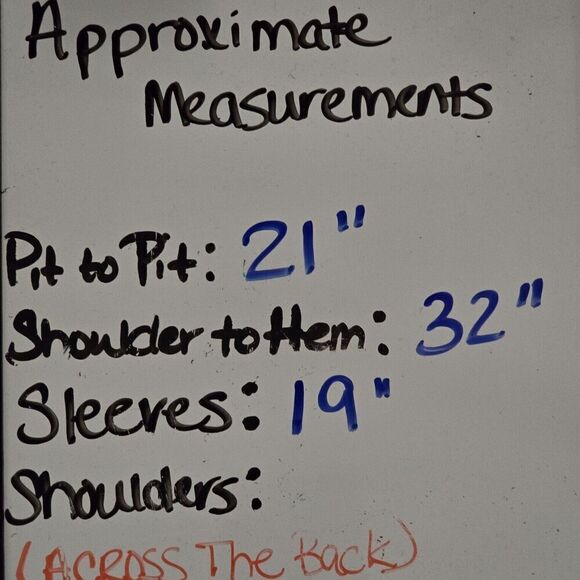 Approximate
Measurements
Pit to Pit: 21"
Shoulder to Hem: 32"
Sleeves: 19"
Shoulders:
(ACROSS The Back)